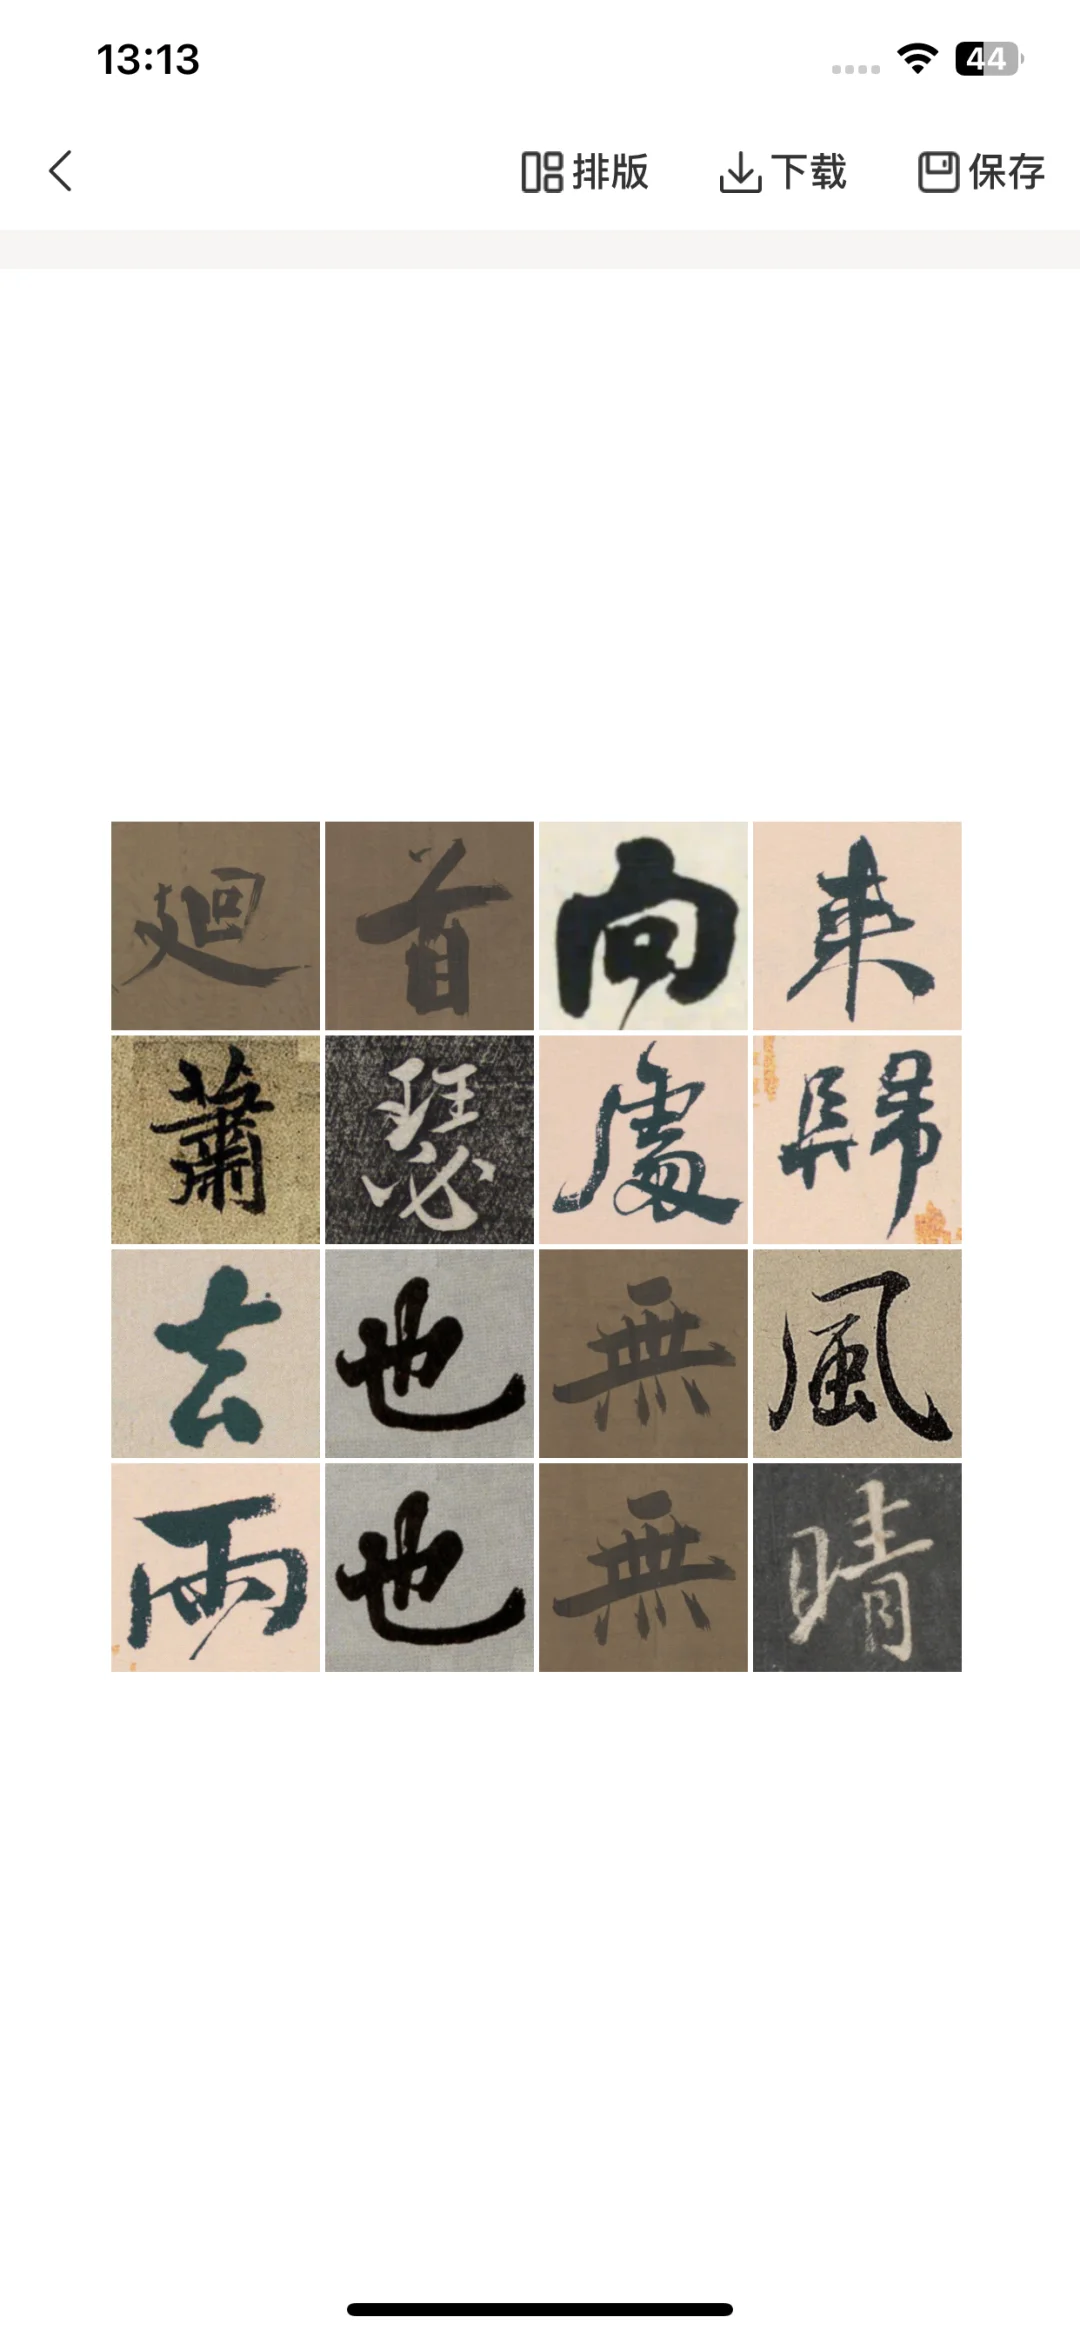 13:13
44
排版 下载 保存
廻首向来
蕭瑟處歸
去也無風
雨也無晴